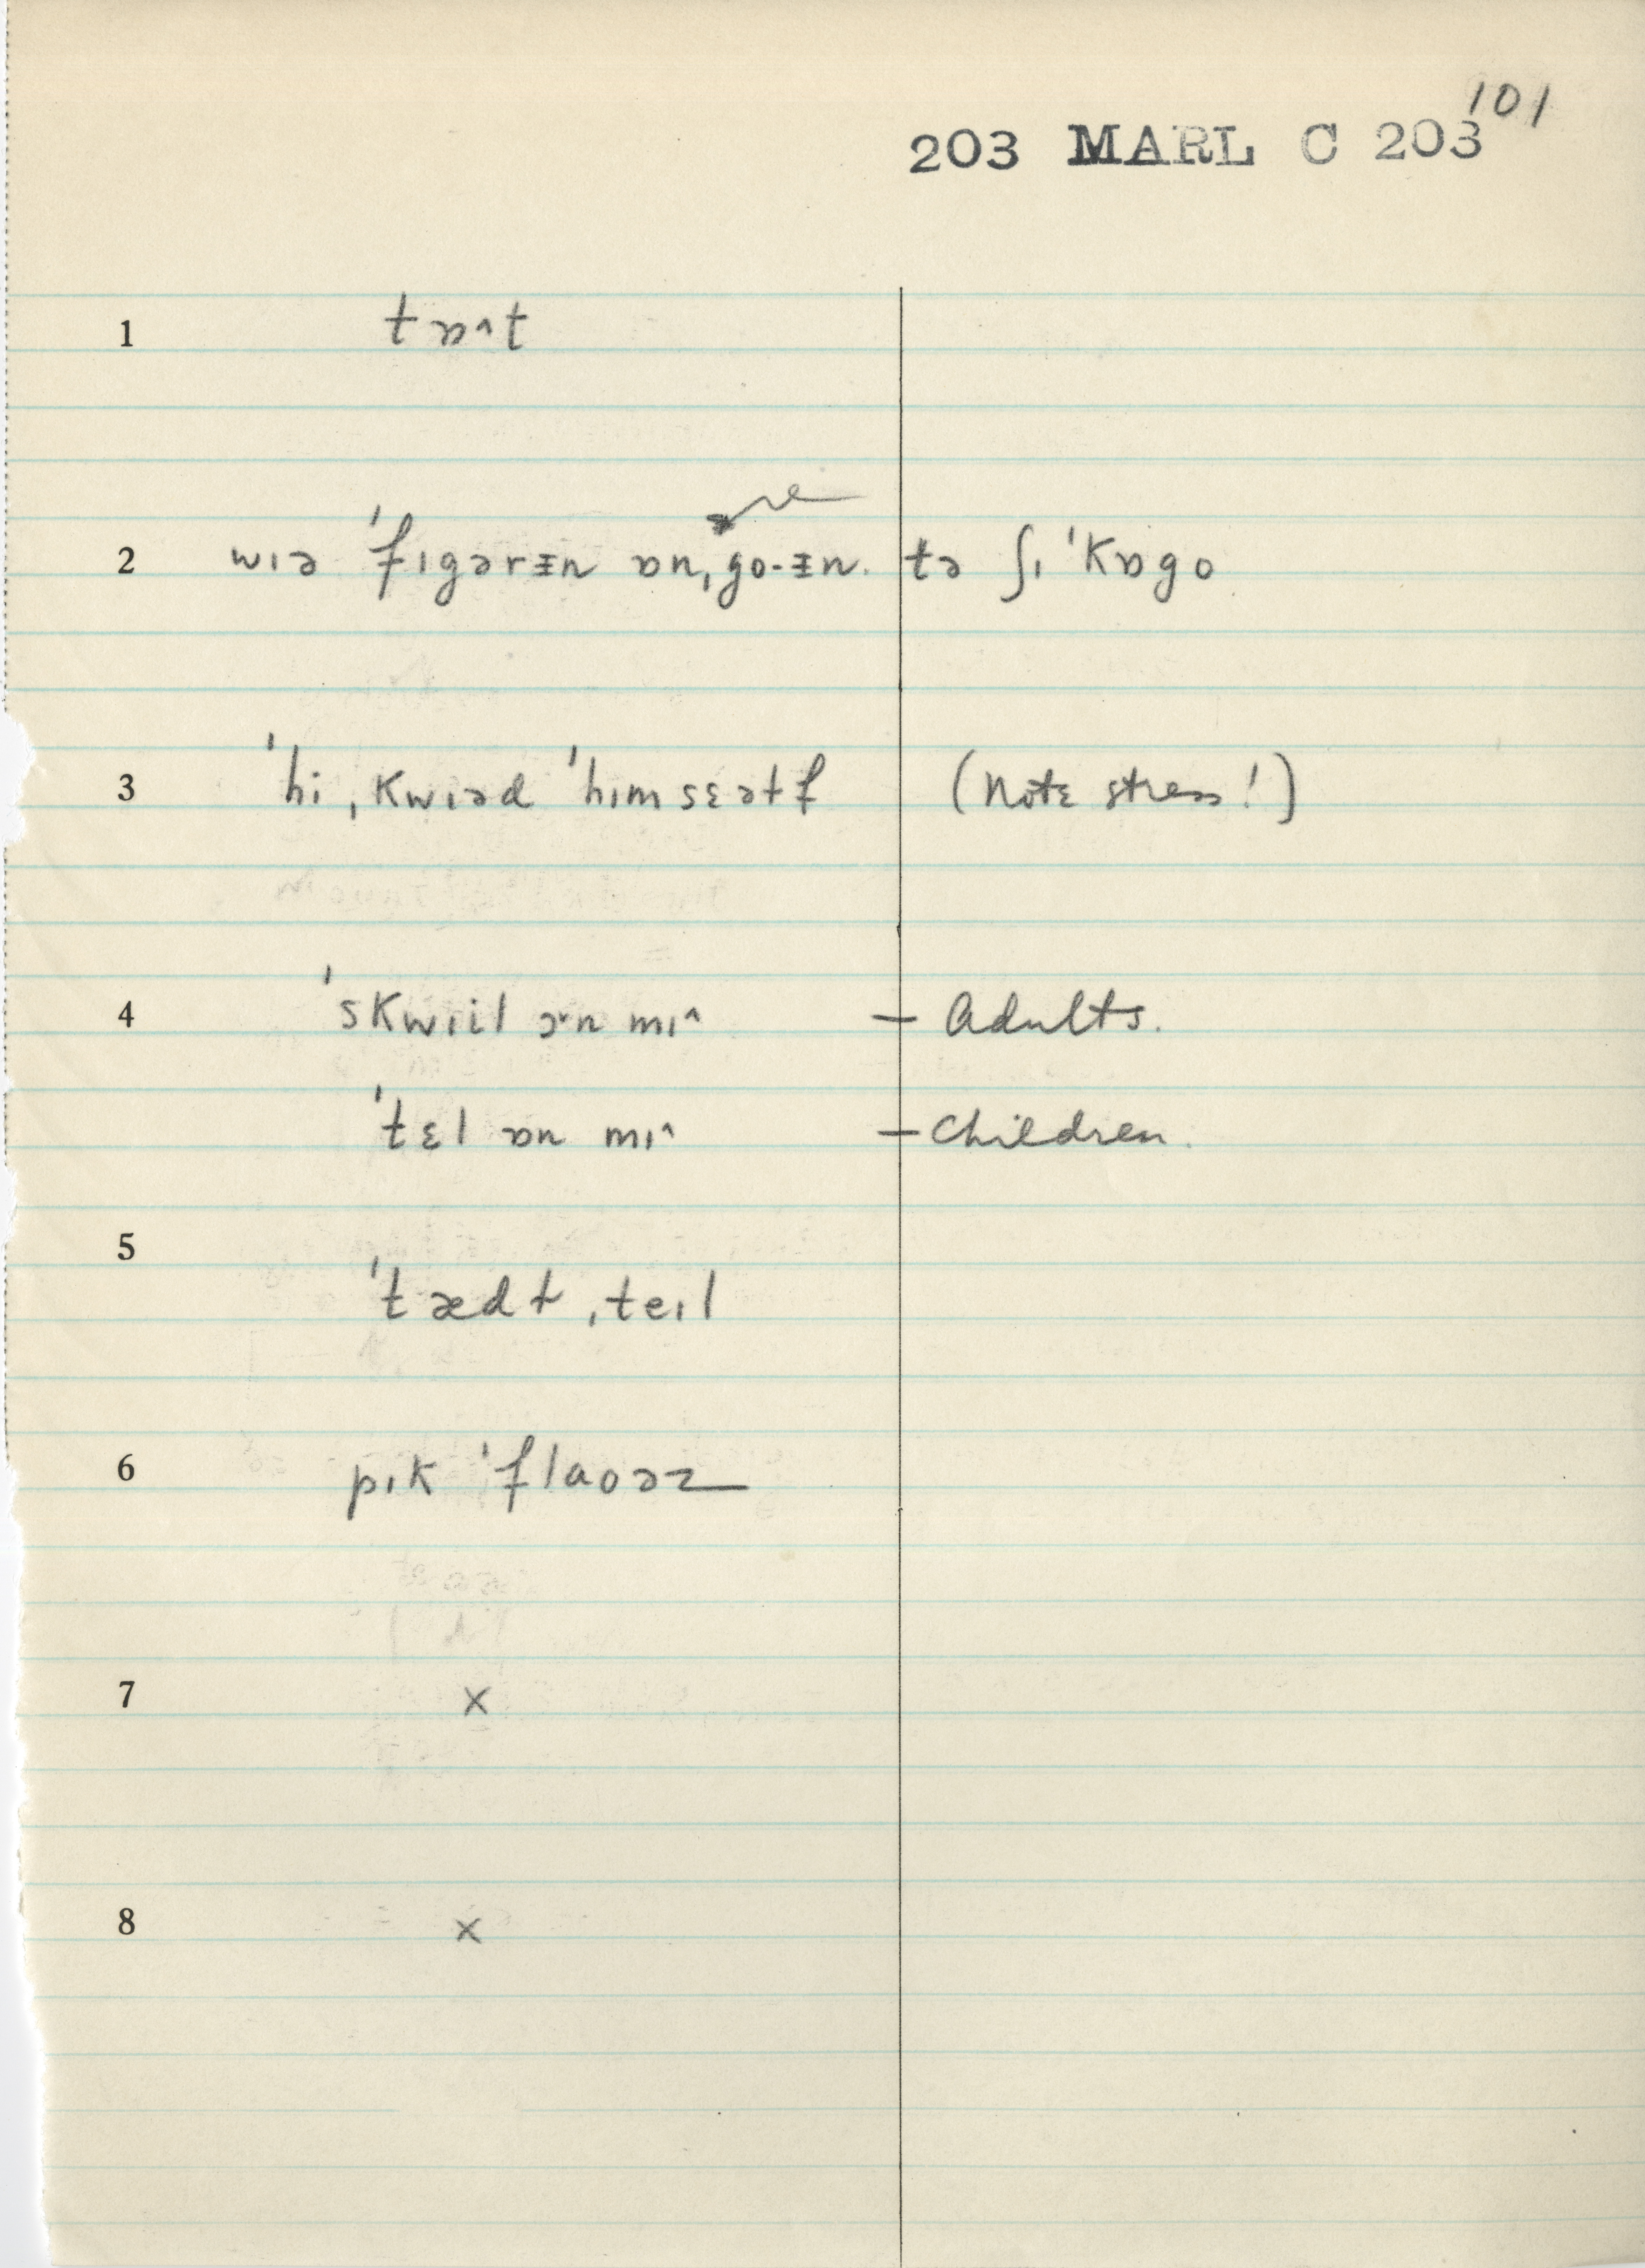 101
203 MARL C 203
1 tɒ˄t
2 wɪə ˈfɪgərɪ̵n ɒn ˌgo-ɪ̵n. tə ʃɪˈkɒgo
3 ˈhi ˌkwɪəd ˈhɪmsɛəɫf (Note stress!)
4 ˈskwɪil ɒ˞n mɪ˄ – Adults.
ˈtɛl ɒn mɪ˄ – Children.
5 ˈtædɫ ˌteɪl
6 pɪk ˈflaoəz
7 x
8 x